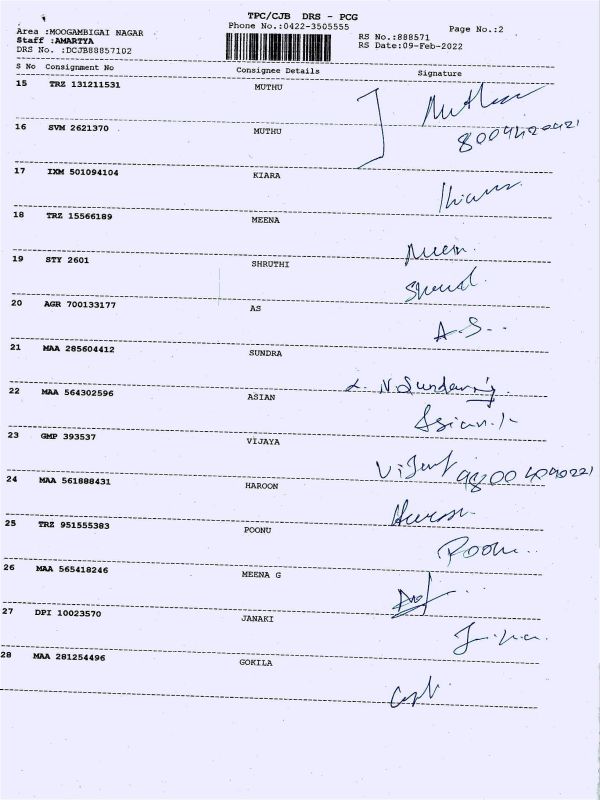 TPC/CJB DRS - PCG
Phone No.:0422-3505555
Page No.:2
Area :MOOGAMBIGAI NAGAR
Staff :AMARTYA
DRS No. :DCJB88857102
RS No.:888571
RS Date:09-Feb-2022
S No Consignment No Consignee Details Signature
15 TRZ 131211531 MUTHU
16 SVM 2621370 MUTHU
17 IXM 501094104 KIARA
18 TRZ 15566189 MEENA
19 STY 2601 SHRUTHI
20 AGR 700133177 AS
A.S...
21 MAA 285604412 SUNDRA
22 MAA 564302596 ASIAN
23 GMP 393537 VIJAYA
24 MAA 561888431 HAROON
25 TRZ 951555383 POONU
26 MAA 565418246 MEENA G
27 DPI 10023570 JANAKI
28 MAA 281254496 GOKILA